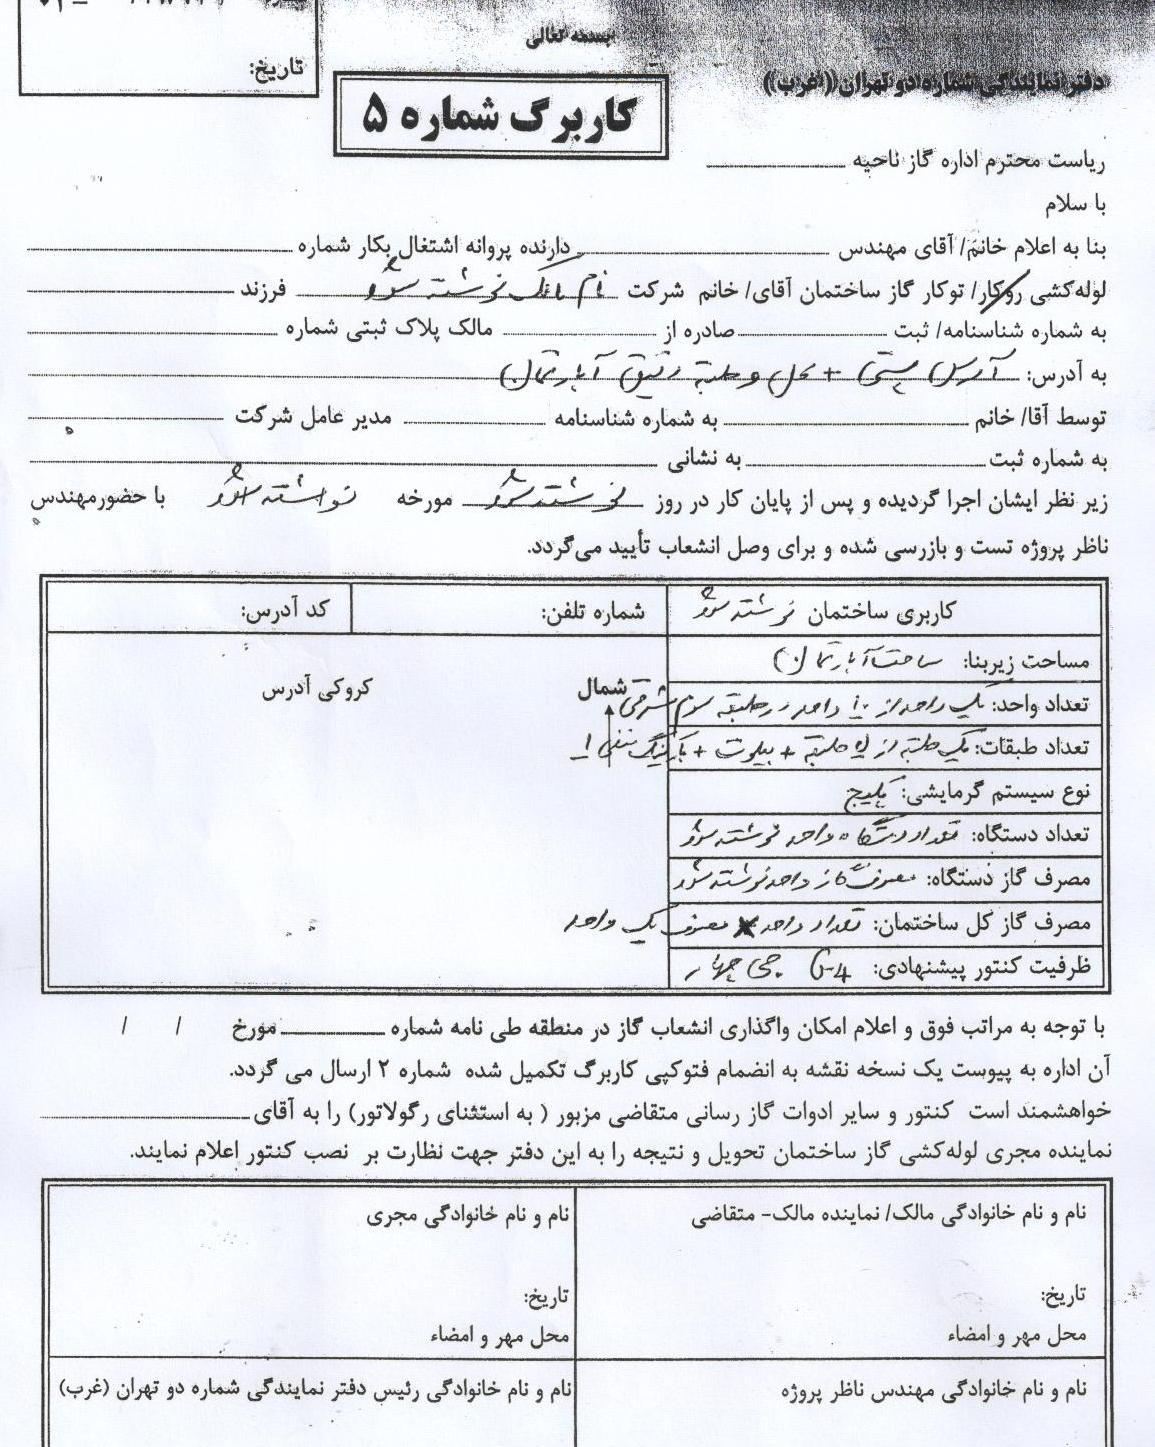 بسمه تعالی
دفتر نمایندگی شماره دو تهران ((غرب))
تاریخ:
کاربرگ شماره ۵
ریاست محترم اداره گاز ناحیه
با سلام
بنا به اعلام خانم/ آقای مهندس دارنده پروانه اشتغال بکار شماره
لوله‌کشی روکار/ توکار گاز ساختمان آقای/ خانم شرکت نام مالک نوشته شود فرزند
به شماره شناسنامه/ ثبت صادره از مالک پلاک ثبتی شماره
به آدرس: آدرس پستی + محل و طبقه دقیق آپارتمان
توسط آقا/ خانم به شماره شناسنامه مدیر عامل شرکت
به شماره ثبت به نشانی
زیر نظر ایشان اجرا گردیده و پس از پایان کار در روز نوشته شود مورخه نوشته شود با حضورمهندس
ناظر پروژه تست و بازرسی شده و برای وصل انشعاب تأیید می‌گردد.
کاربری ساختمان نوشته شود
شماره تلفن:
کد آدرس:
مساحت زیربنا: مساحت آپارتمان
تعداد واحد: یک واحد از ۱۰ واحد در طبقه سوم شرقی
تعداد طبقات: یک طبقه از ۵ طبقه + پیلوت + پارکینگ منفی ۱
نوع سیستم گرمایشی: پکیج
تعداد دستگاه: تعداد دستگاه واحد نوشته شود
مصرف گاز دستگاه: مصرف گاز واحد نوشته شود
مصرف گاز کل ساختمان: تعداد واحد × مصرف یک واحد
ظرفیت کنتور پیشنهادی: G-4 جی چهار
شمال
کروکی آدرس
با توجه به مراتب فوق و اعلام امکان واگذاری انشعاب گاز در منطقه طی نامه شماره مورخ / /
آن اداره به پیوست یک نسخه نقشه به انضمام فتوکپی کاربرگ تکمیل شده شماره ۲ ارسال می گردد.
خواهشمند است کنتور و سایر ادوات گاز رسانی متقاضی مزبور ( به استثنای رگولاتور) را به آقای
نماینده مجری لوله‌کشی گاز ساختمان تحویل و نتیجه را به این دفتر جهت نظارت بر نصب کنتور اعلام نمایند.
نام و نام خانوادگی مالک/ نماینده مالک- متقاضی
تاریخ:
محل مهر و امضاء
نام و نام خانوادگی مجری
تاریخ:
محل مهر و امضاء
نام و نام خانوادگی مهندس ناظر پروژه
نام و نام خانوادگی رئیس دفتر نمایندگی شماره دو تهران (غرب)